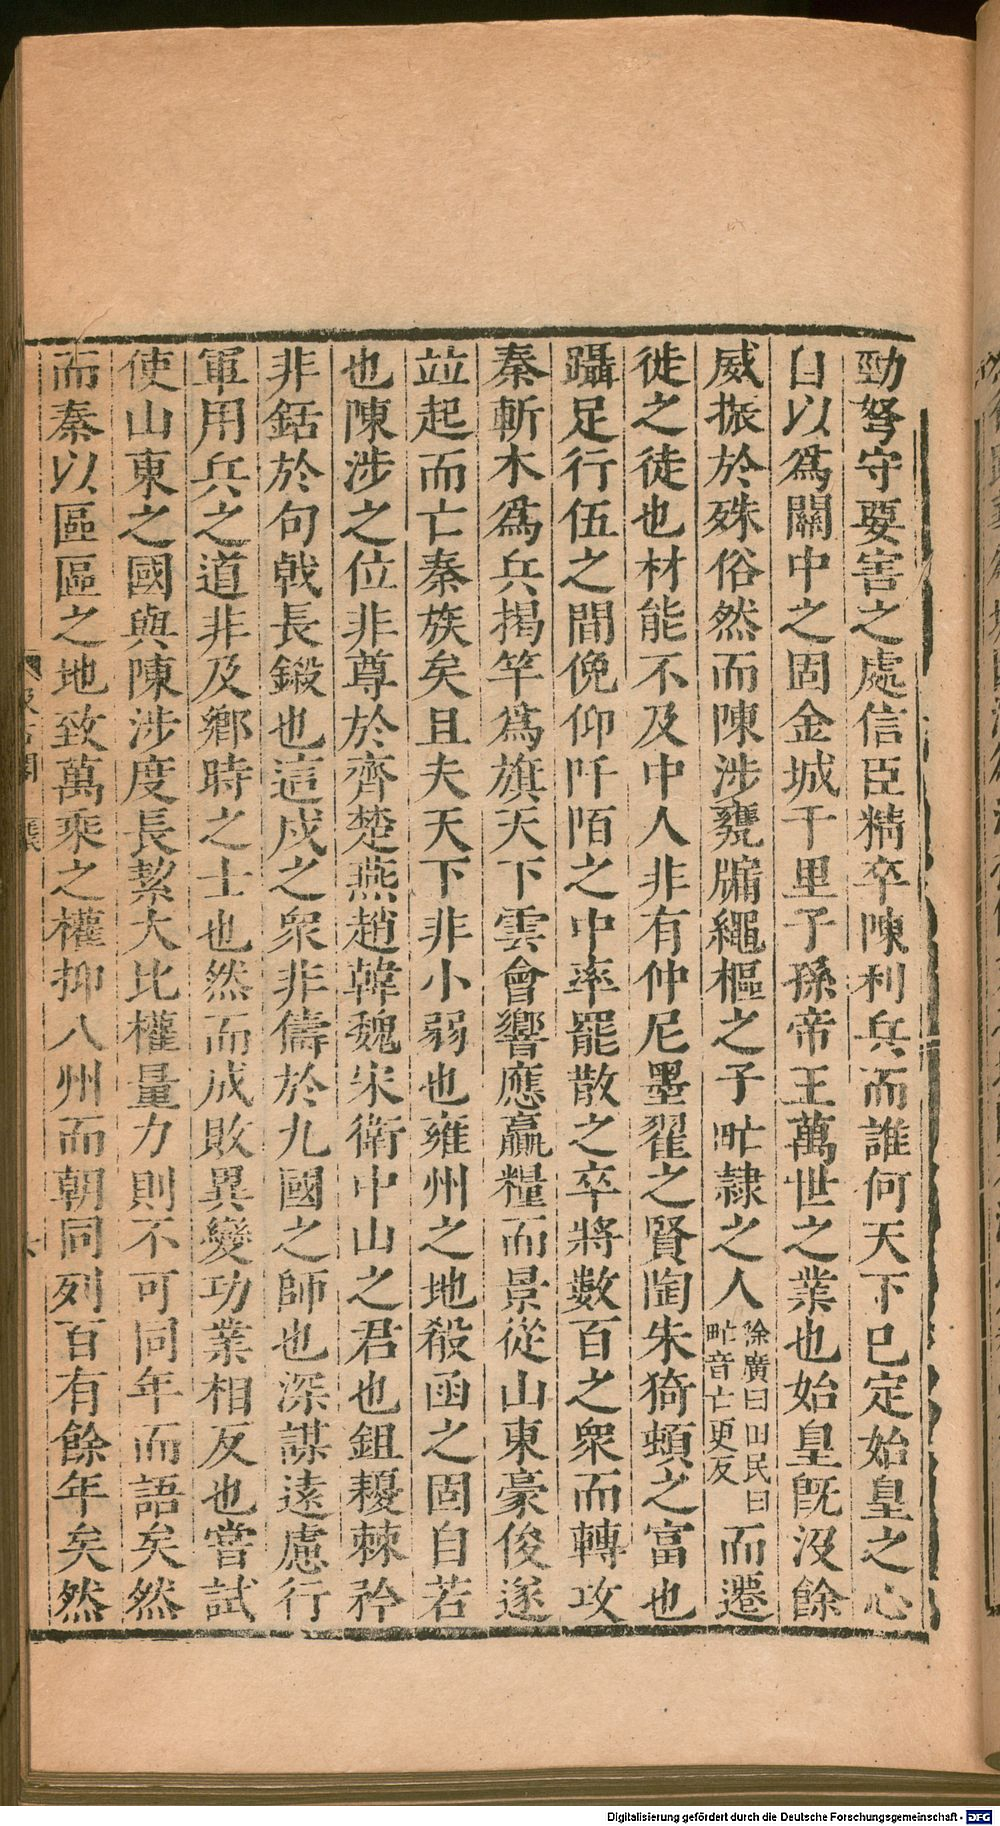 勁弩守要害之處信臣精卒陳利兵而誰何天下已定始皇之心
自以爲關中之固金城千里子孫帝王萬世之業也始皇旣沒餘
威振於殊俗然而陳涉甕牖繩樞之子甿隸之人
徐廣曰田民曰
甿音亡更反
而遷
徙之徒也材能不及中人非有仲尼墨翟之賢陶朱猗頓之富也
躡足行伍之間俛仰阡陌之中率罷散之卒將數百之衆而轉攻
秦斬木爲兵揭竿爲旗天下雲會響應贏糧而景從山東豪俊遂
竝起而亡秦族矣且夫天下非小弱也雍州之地殽函之固自若
也陳涉之位非尊於齊楚燕趙韓魏宋衛中山之君也鉏耰棘矜
非銛於句戟長鎩也適戍之衆非儔於九國之師也深謀遠慮行
軍用兵之道非及鄉時之士也然而成敗異變功業相反也嘗試
使山東之國與陳涉度長絜大比權量力則不可同年而語矣然
而秦以區區之地致萬乘之權抑八州而朝同列百有餘年矣然
Digitalisierung gefördert durch die Deutsche Forschungsgemeinschaft - DFG